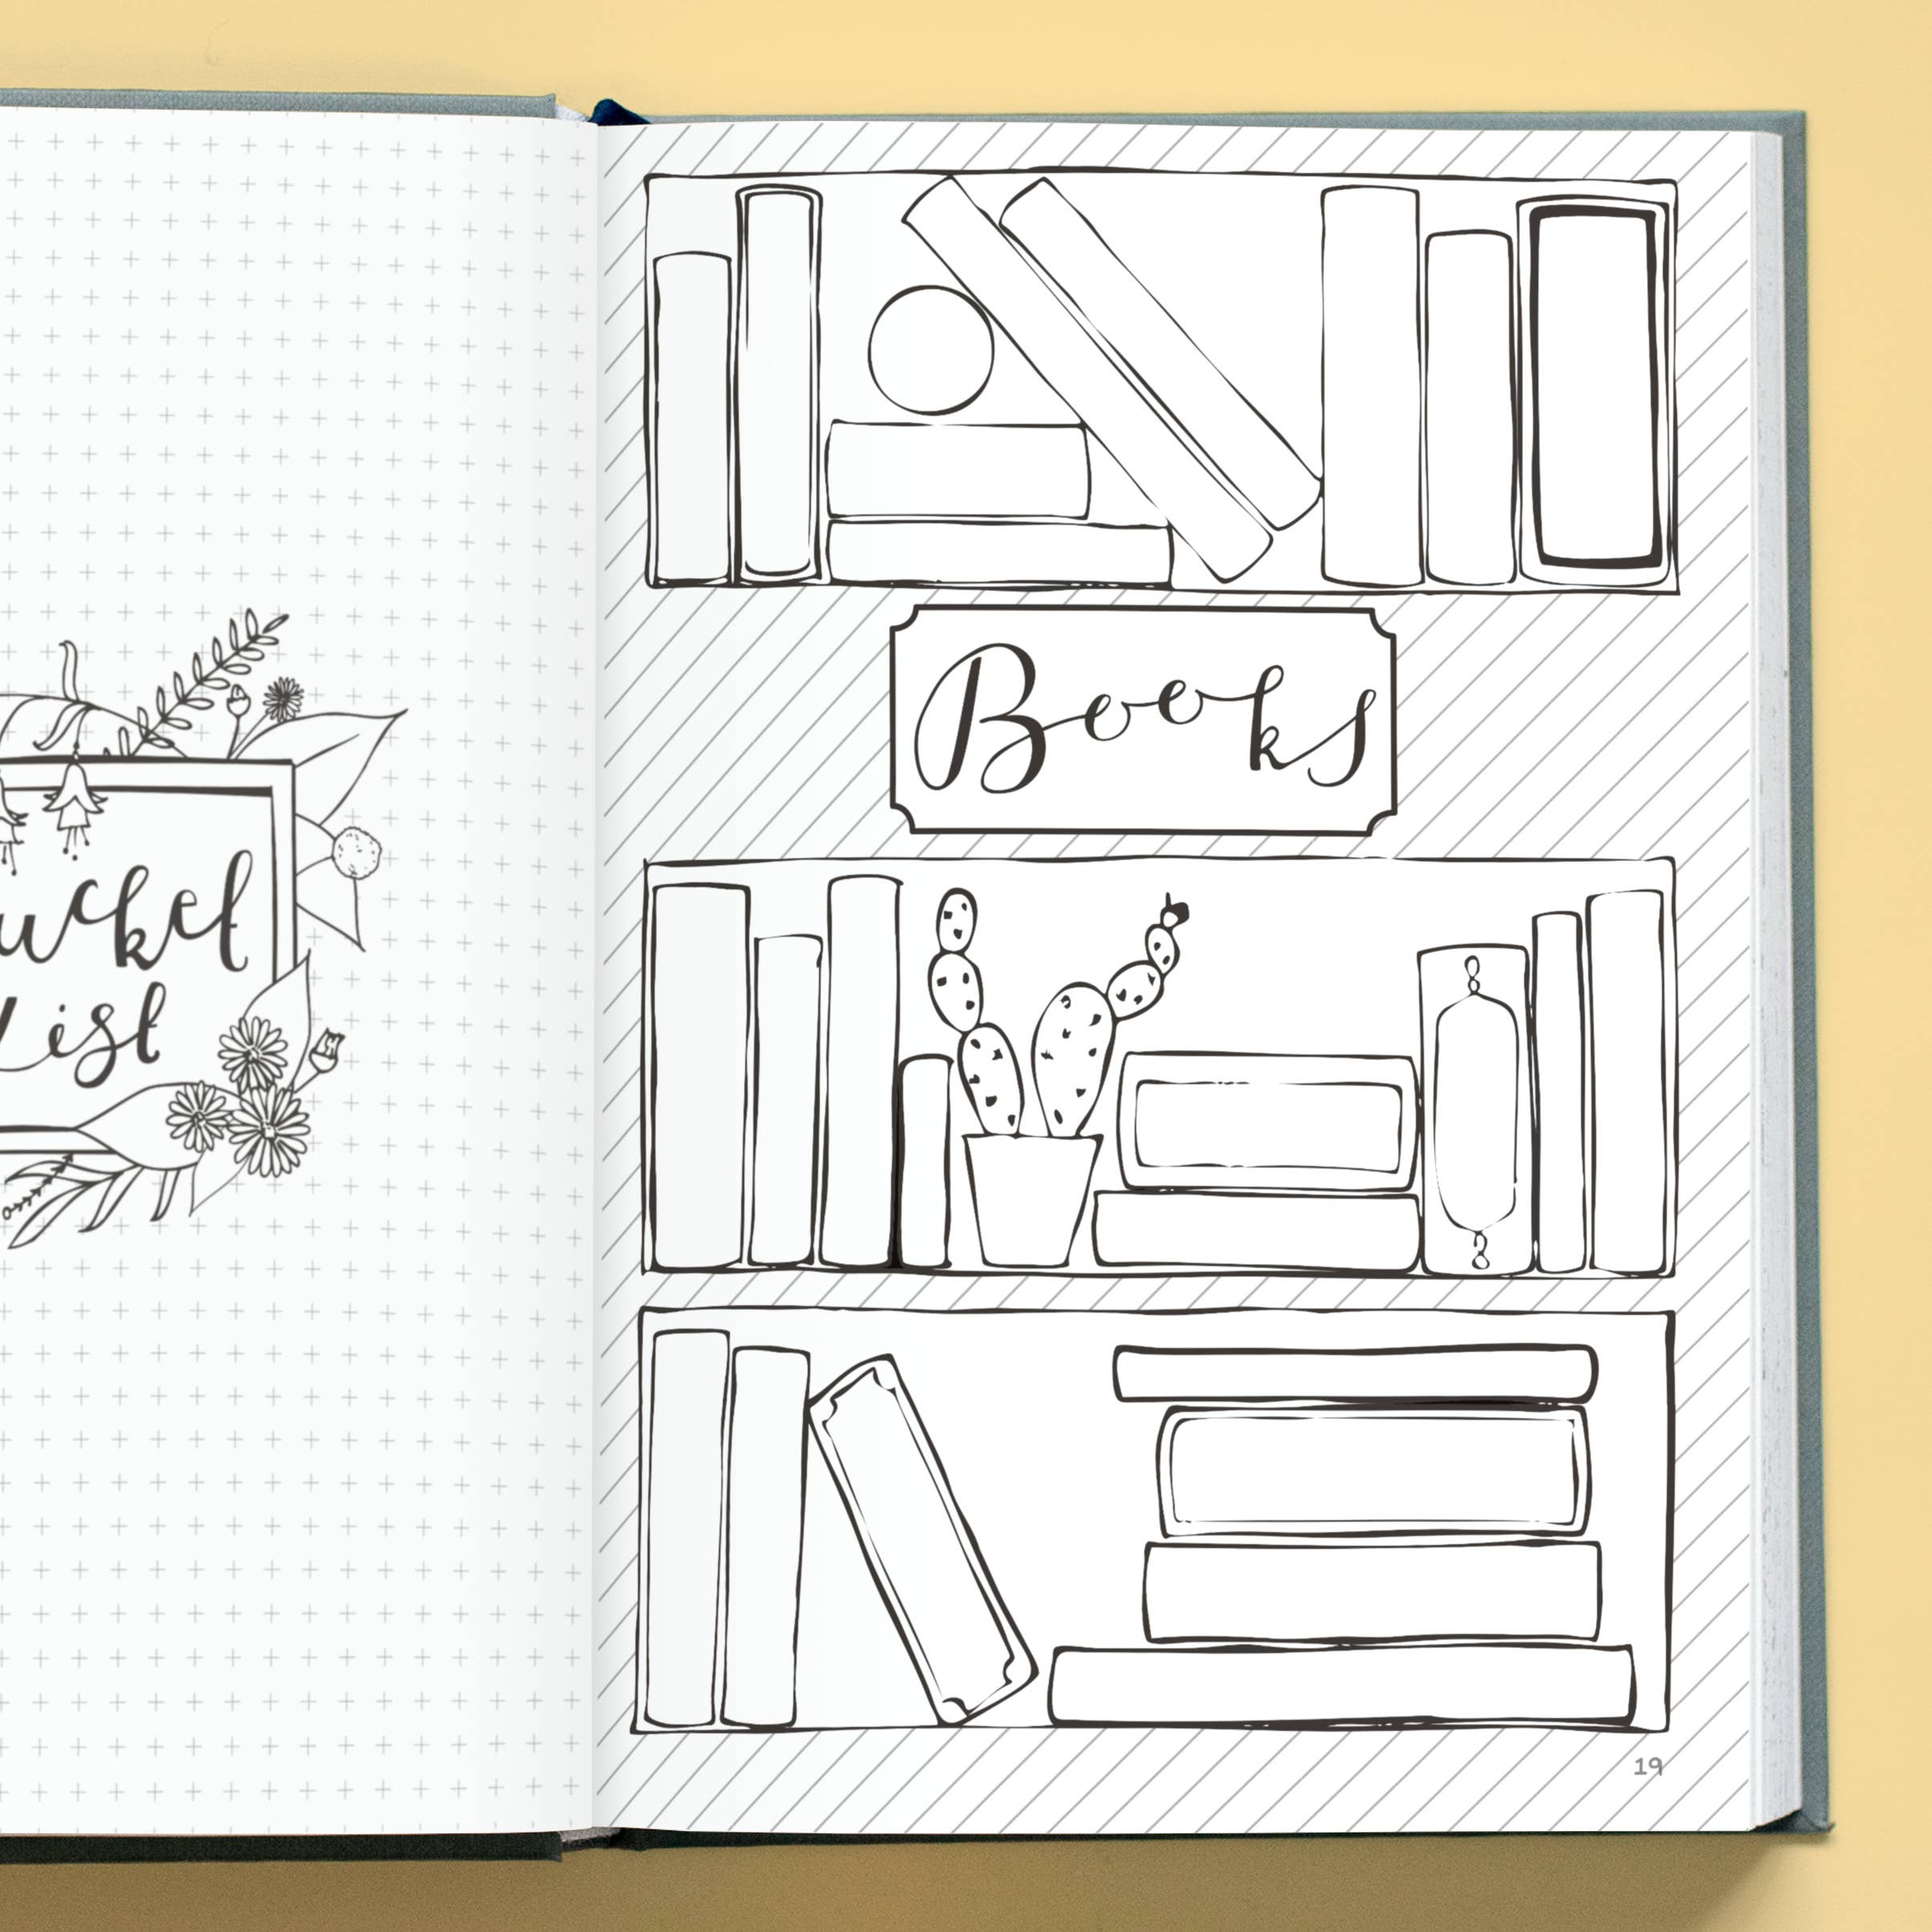 ucket
List
Books
19